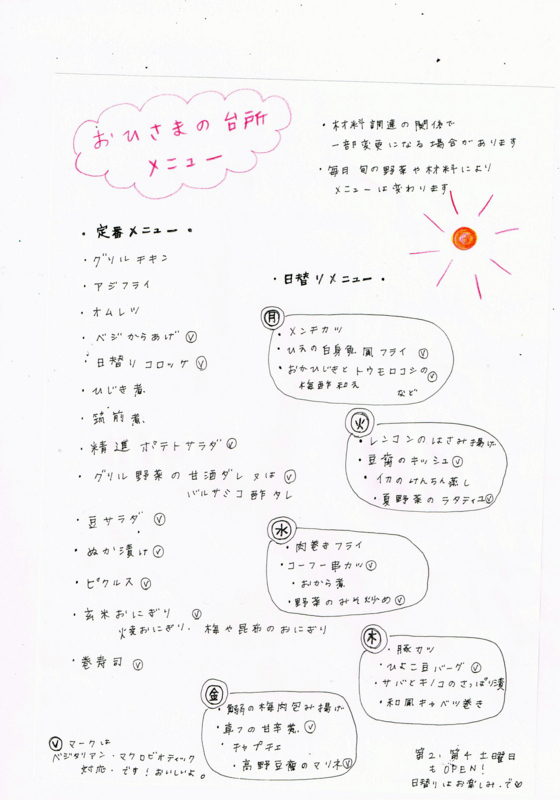 おひさまの台所
メニュー
・材料調達の関係で
一部変更になる場合があります
・毎日旬の野菜や材料により
メニューは変わります
・定番メニュー。
・グリルチキン
・アジフライ
・オムレツ
・ベジからあげ Ⓥ
・日替りコロッケ Ⓥ
・ひじき煮
・筑前煮
・精進ポテトサラダ Ⓥ
・グリル野菜の甘酒ダレ又は Ⓥ
バルサミコ酢タレ
・豆サラダ Ⓥ
・ぬか漬け Ⓥ
・ピクルス Ⓥ
・玄米おにぎり Ⓥ
焼おにぎり、梅や昆布のおにぎり
・巻寿司 Ⓥ
Ⓥ マークは
ベジタリアン・マクロビオティック
対応・です!おいしいよ。
・日替りメニュー・
月
・メンチカツ
・ひえの白身魚風フライ Ⓥ
・おかひじきとトウモロコシの Ⓥ
梅酢和え
など
火
・レンコンのはさみ揚げ
・豆腐のキッシュ Ⓥ
・イカのけんちん蒸し
・夏野菜のラタティユ Ⓥ
水
・肉巻きフライ
・コーフー串カツ Ⓥ
・おから煮
・野菜のみそ炒め Ⓥ
木
・豚カツ
・ひよこ豆バーグ Ⓥ
・サバとキノコのさっぱり漬
・和風キャベツ巻き
金
・鰯の梅肉包み揚げ
・車フの甘辛煮 Ⓥ
・チャプチェ
・高野豆腐のマリネ Ⓥ
第2、第4土曜日
もOPEN!
日替りはお楽しみ、で♡